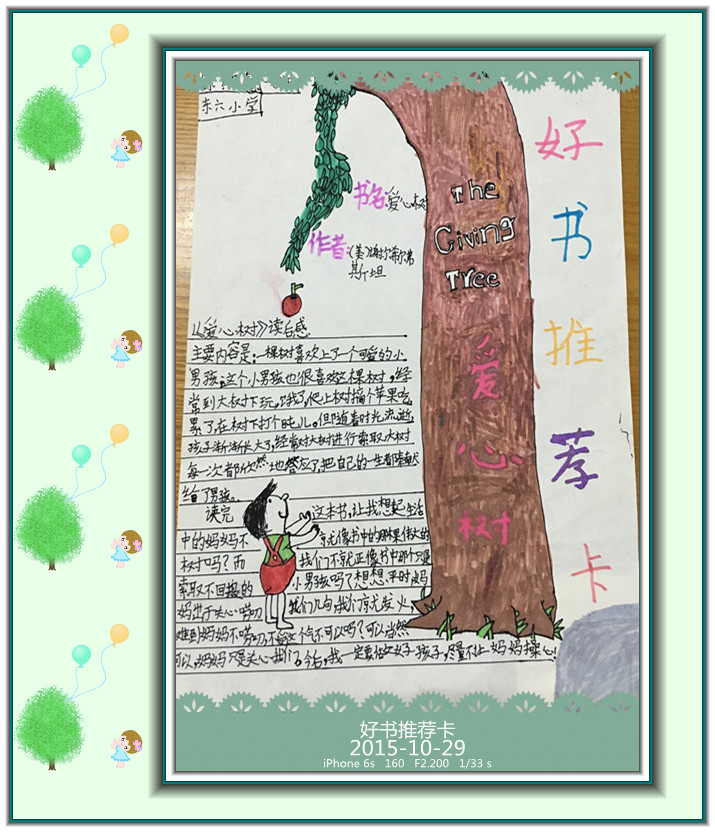 东六小学
好书推荐卡
书名：爱心树
作者：(美)谢尔·希尔弗
斯坦
The
Giving
Tree
爱心树
《爱心树》读后感
主要内容是：一棵树喜欢上了一个可爱的小
男孩，这个小男孩也很喜欢这棵树，经
常到大树下玩，饿了，爬上树摘个苹果吃，
累了，在树下打个盹儿。但随着时光流逝，
孩子渐渐长大了，经常对大树进行索取，大树
每一次都欣然地答应了，把自己的一生都奉献
给了男孩。
读完这本书，让我想起生活
中的妈妈不就像书中的那棵伟大的
树吗？而我们不就正像书中那个只是
索取不回报的小男孩吗？想想，平时妈
妈出于关心唠叨我们几句，我们就发火，
难到妈妈不唠叨，不给个气不可以吗？可以，当然
可以，妈妈只是关心我们。今后，我一定要做个好孩子，尽量不让妈妈操心！
好书推荐卡
2015-10-29
iPhone 6s 160 F2.200 1/33 s